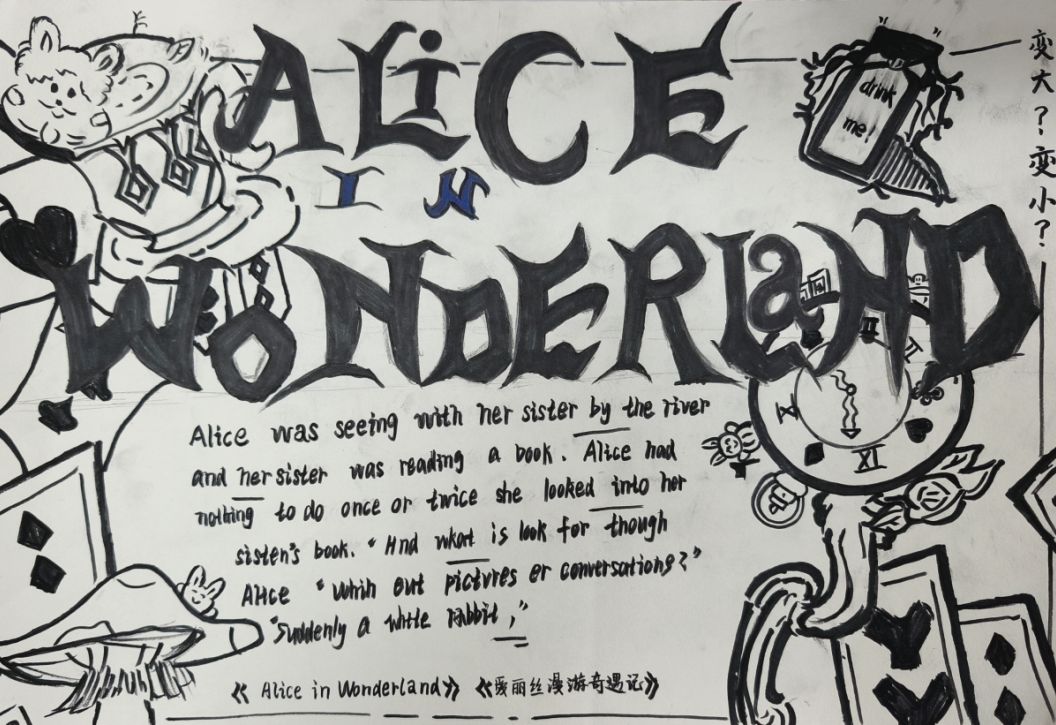 ALiCE
IN
WONDERLaND
drink
me!
变大?变小?
XI
Alice was seeing with her sister by the river
and her sister was reading a book. Alice had
nothing to do once or twice she looked into her
sisten's book. "And wkat is look for though
Alice "Whin out pictvres er conversations?"
"Suddenly a white rabbit,"
《Alice in Wonderland》《爱丽丝漫游奇遇记》